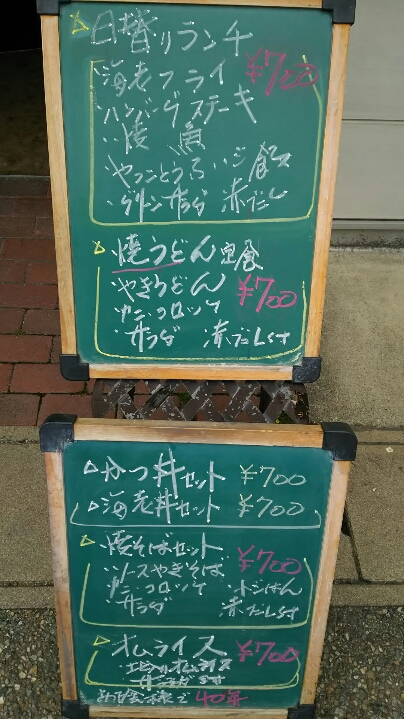 日替りランチ
・海老フライ ¥700
・ハンバーグステーキ
・焼 魚
・やっことうふ ・ご飯
・グリーンサラダ 赤だし
焼うどん定食
・やきうどん ¥700
・カニコロッケ
・サラダ 赤だし付
かつ丼セット ¥700
海老丼セット ¥700
焼そばセット
・ソースやきそば ¥700
・カニコロッケ
・サラダ 赤だし付
オムライス ¥700
オムライス
40年